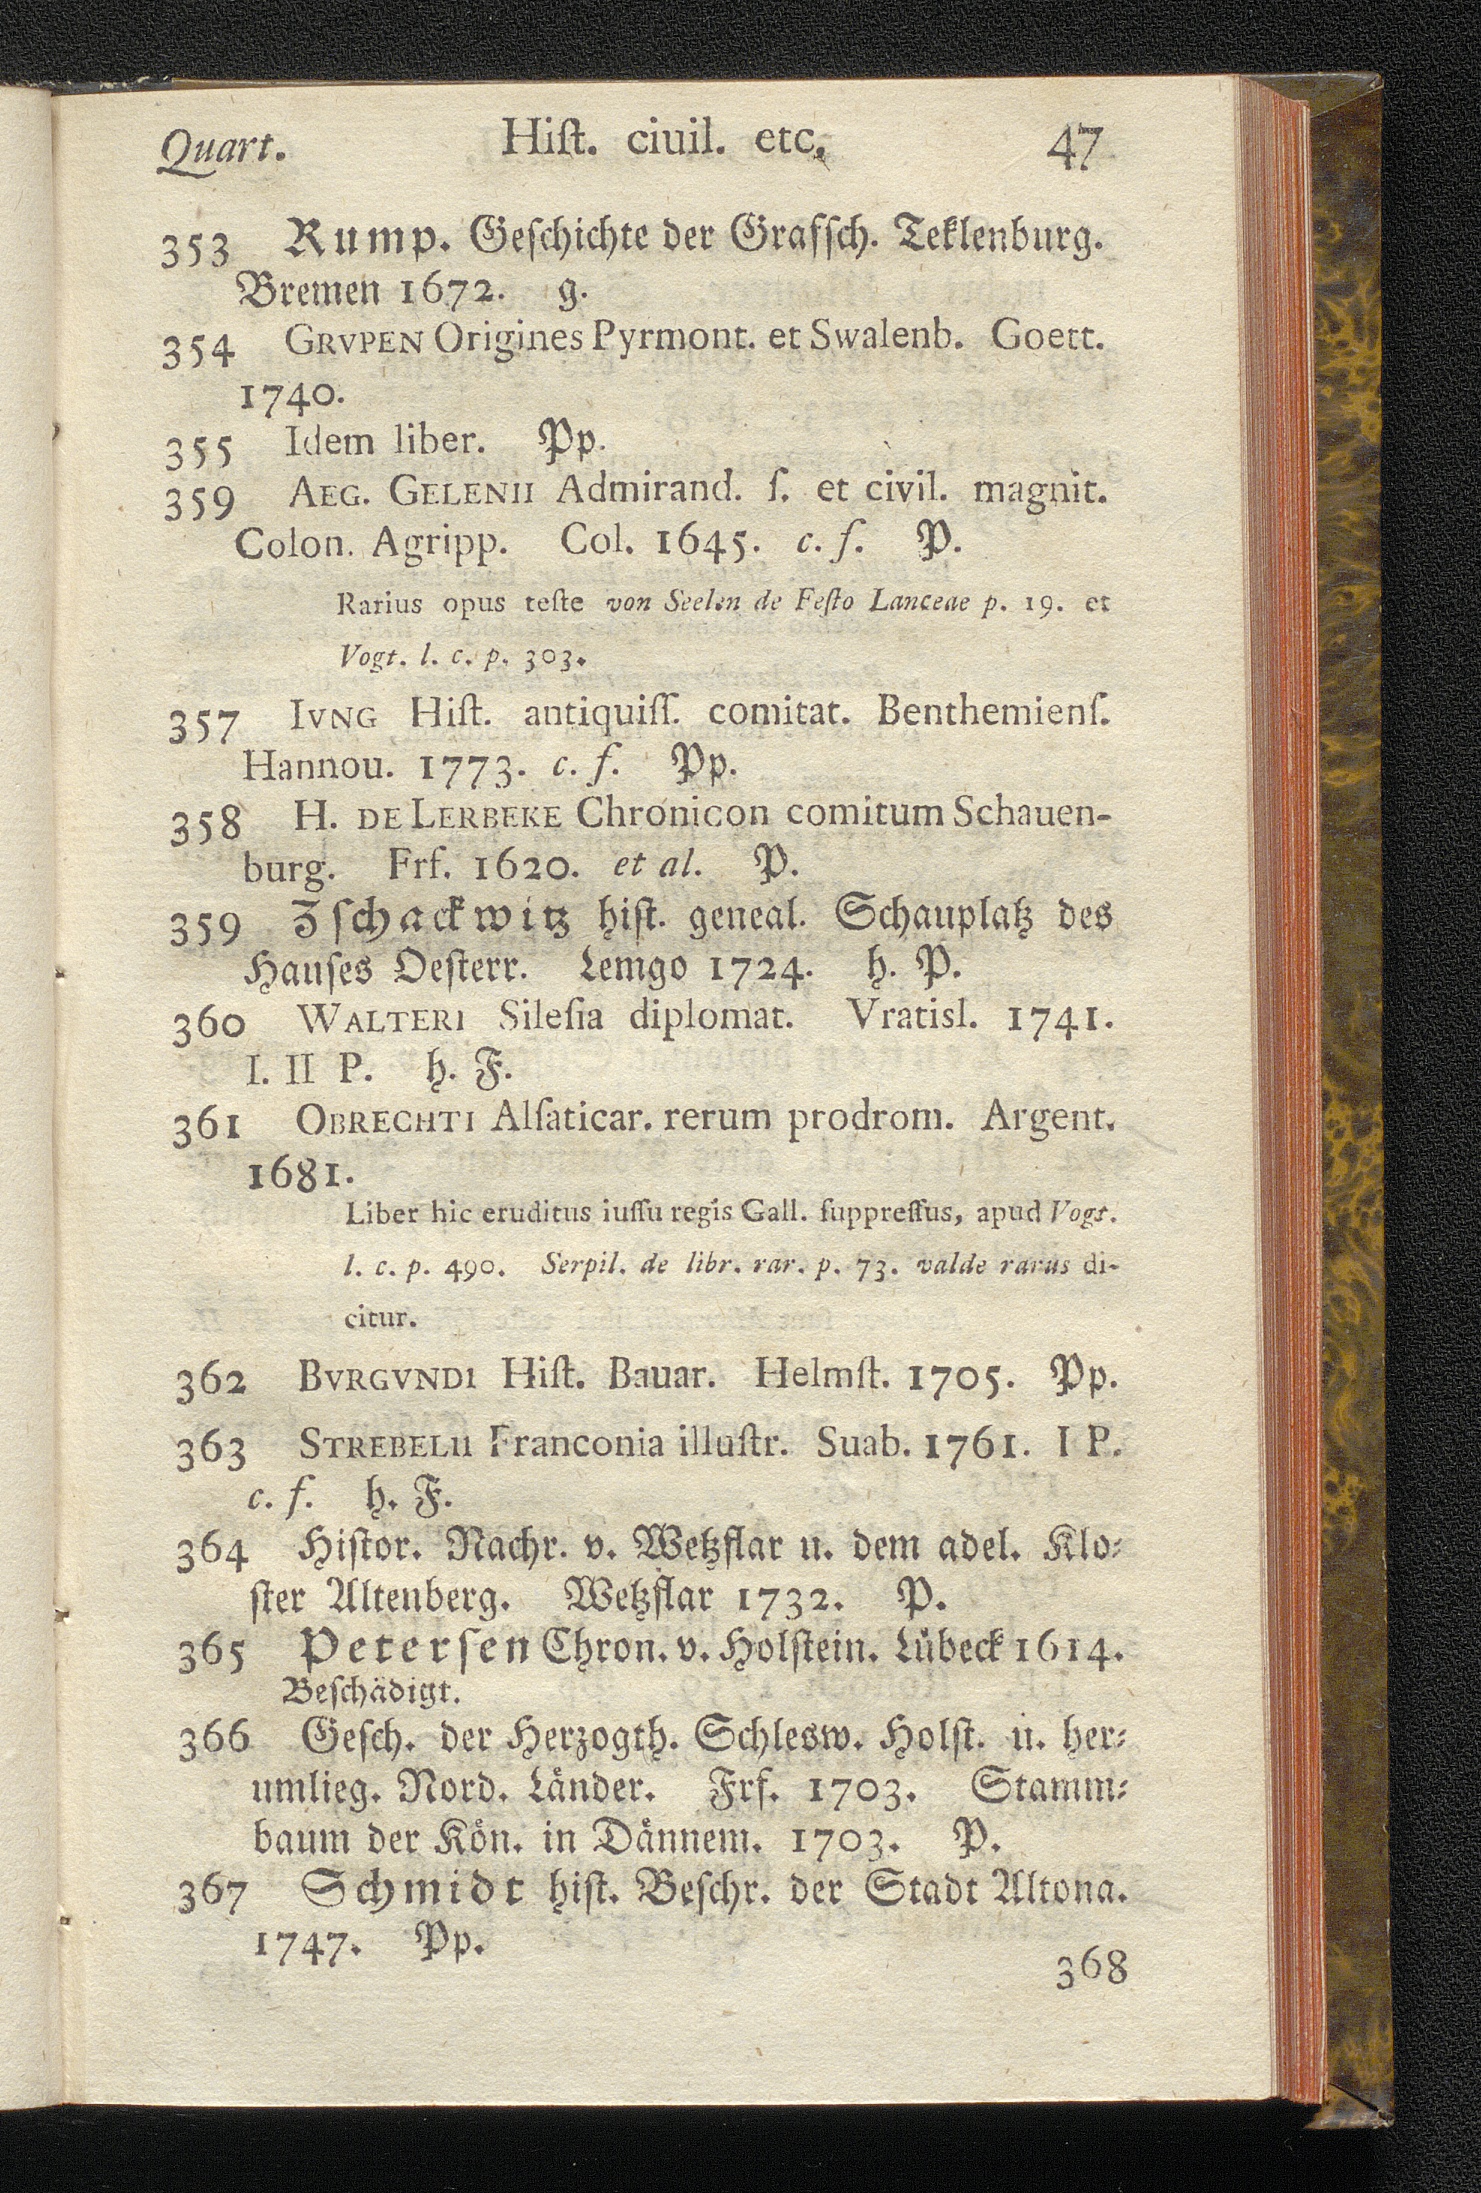 Quart. Hiſt. ciuil. etc. 47
353 Rump. Geſchichte der Grafſch. Teklenburg.
Bremen 1672. g.
354 GRVPEN Origines Pyrmont. et Swalenb. Goett.
1740.
355 Idem liber. Pp.
359 AEG. GELENII Admirand. ſ. et civil. magnit.
Colon. Agripp. Col. 1645. c. f. P.
Rarius opus teſte von Seelen de Feſto Lanceae p. 19. et
Vogt. l. c. p. 303.
357 IVNG Hiſt. antiquiſſ. comitat. Benthemienſ.
Hannou. 1773. c. f. Pp.
358 H. DE LERBEKE Chronicon comitum Schauen-
burg. Frf. 1620. et al. P.
359 Zſchackwitz hiſt. geneal. Schauplatz des
Hauſes Oeſterr. Lemgo 1724. h. P.
360 WALTERI Sileſia diplomat. Vratisl. 1741.
I. II P. h. F.
361 OBRECHTI Alſaticar. rerum prodrom. Argent.
1681.
Liber hic eruditus iuſſu regis Gall. ſuppreſſus, apud Vogt.
l. c. p. 490. Serpil. de libr. rar. p. 73. valde rarus di-
citur.
362 BVRGVNDI Hiſt. Bauar. Helmſt. 1705. Pp.
363 STREBELII Franconia illuſtr. Suab. 1761. I P.
c. f. h. F.
364 Hiſtor. Nachr. v. Wetzflar u. dem adel. Klo⸗
ſter Altenberg. Wetzflar 1732. P.
365 Peterſen Chron. v. Holſtein. Lübeck 1614.
Beſchädigt.
366 Geſch. der Herzogth. Schlesw. Holſt. u. her⸗
umlieg. Nord. Länder. Frf. 1703. Stamm⸗
baum der Kön. in Dännem. 1703. P.
367 Schmidt hiſt. Beſchr. der Stadt Altona.
1747. Pp.
368